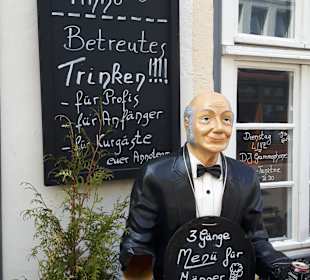 Betreutes
Trinken!!!!
- für Profis
- für Anfänger
- für Kurgäste
euer
Dienstag
3 Gänge
Menü für
Männer